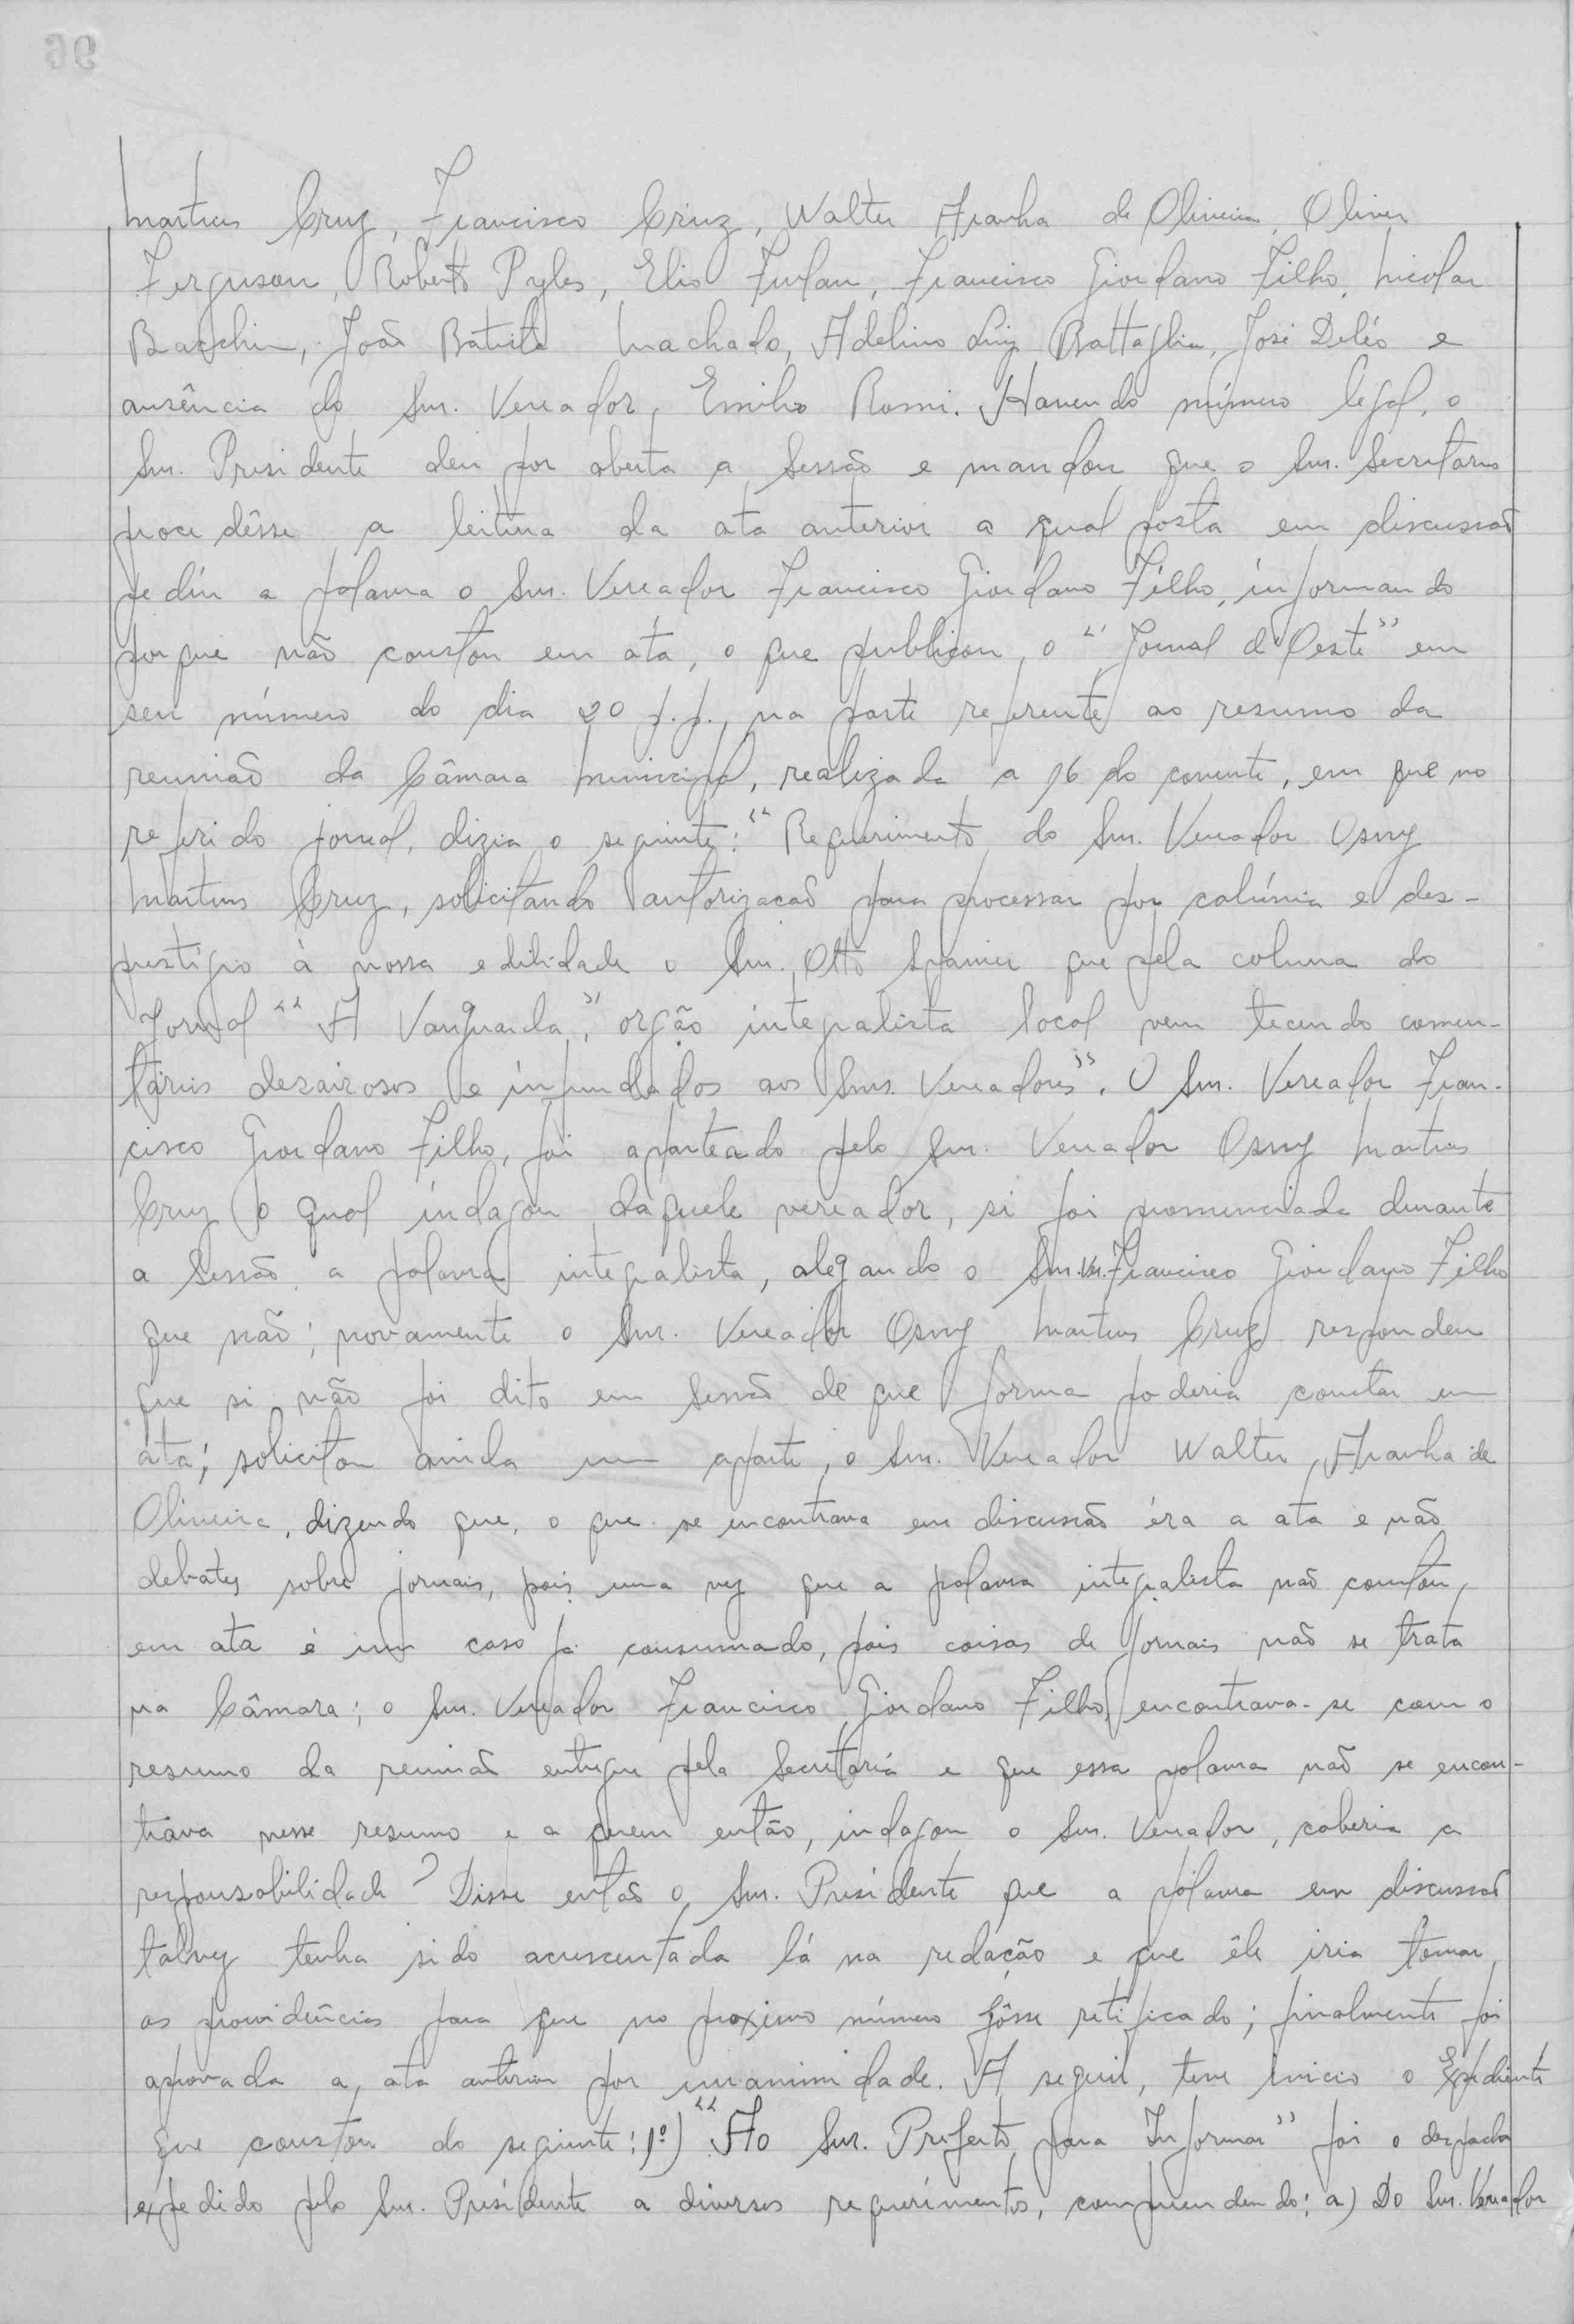 Martins Cruz, Francisco Cruz, Walter Aranha de Oliveira, Oliver
Ferguson, Roberto Pyles, Elio Furlan, Francisco Giordano Filho, Nicolau
Bacchin, João Batista Machado, Adelino Luiz Battaglia, José Deléo e
ausência do Snr. Vereador, Emilio Romi. Havendo número legal, o
Snr. Presidente deu por aberta a Sessão e mandou que o Snr. Secretario
procedêsse a leitura da ata anterior a qual posta em discussão
pediu a palavra o Snr. Vereador Francisco Giordano Filho, informando
porque não constou em áta, o que publicou, o "Jornal d'Oeste" em
seu número do dia 20 p.p., na parte referente ao resumo da
reunião da Câmara Municipal, realizada a 16 do corrente, em que no
referido jornal, dizia o seguinte: "Requerimento do Snr. Vereador Osny
Martins Cruz, solicitando autorizacão para processar por calúnia e des-
prestígio à nossa edilidade o Snr. Otto Spanier que pela coluna do
Jornal "A Vanguarda", orgão integralista local vem tecendo comen-
tários desairosos e infundados aos Snrs. Vereadores". O Snr. Vereador Fran-
cisco Giordano Filho, foi aparteado pelo Snr. Vereador Osny Martins
Cruz o qual indagou daquele vereador, si foi pronunciada durante
a Sessão a palavra integralista, alegando o Snr. Vr. Francisco Giordano Filho
que não; novamente o Snr. Vereador Osny Martins Cruz respondeu
que si não foi dito em Sessão de que forma poderia constar em
áta; solicitou ainda um aparte, o Snr. Vereador Walter Aranha de
Oliveira, dizendo que, o que se encontrava em discussão éra a ata e não
debates sobre jornais, pois uma vez que a palavra integralista não constou,
em ata é um caso já consumado, pois coisas de jornais não se trata
na Câmara; o Snr. Vereador Francisco Giordano Filho, encontrava-se com o
resumo da reunião entregue pela Secretaria e que essa palavra não se encon-
trava nesse resumo e a quem então, indagou o Snr. Vereador, caberia a
responsabilidade? Disse então o Snr. Presidente que a palavra em discussão
talvez tenha sido acrescentada lá na redação e que êle iria tomar
as providências para que no proximo número fôsse retificado; finalmente foi
aprovada a, ata anterior por unanimidade. A seguir, teve inicio o Expediente
que constou do seguinte: 1º) "Ao Snr. Prefeito para Informar" foi o despacho
expedido pelo Snr. Presidente a diversos requerimentos, compreendendo: a) Do Snr. Vereador